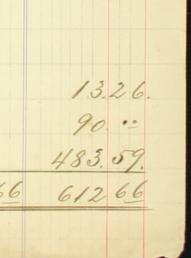 13.26.
90 "
483.59.
66 612 66